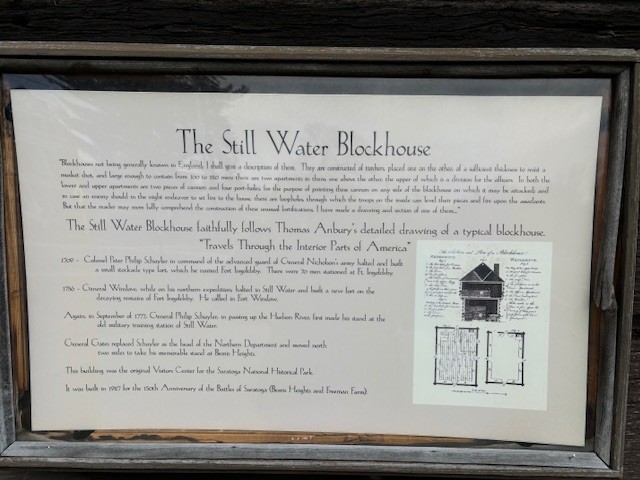 The Still Water Blockhouse
"Blockhouses not being generally known in England, I shall give a description of them. They are constructed of timbers, placed one on the other, of a sufficient thickness to resist a
musket shot, and large enough to contain from 100 to 120 men; there are two apartments in them, one above the other; the upper of which is a division for the officers. In both the
lower and upper apartments are two pieces of cannon and four port-holes, for the purpose of pointing these cannon on any side of the blockhouse on which it may be attacked; and
in case an enemy should in the night endeavor to set fire to the house, there are loopholes, through which the troops on the inside can level their pieces and fire upon the assailants.
But that the reader may more fully comprehend the construction of these unusual fortifications, I have made a drawing and section of one of them..."
The Still Water Blockhouse faithfully follows Thomas Anbury's detailed drawing of a typical blockhouse.
"Travels Through the Interior Parts of America"
1709 - Colonel Peter Philip Schuyler in command of the advanced guard of General Nicholson's army halted and built
a small stockade type fort, which he named Fort Ingoldsby. There were 70 men stationed at Ft. Ingoldsby.
1756 - General Winslow, while on his northern expedition, halted in Still Water and built a new fort on the
decaying remains of Fort Ingoldsby. He called it Fort Winslow.
Again, in September of 1777, General Philip Schuyler, in passing up the Hudson River, first made his stand at the
old military training station of Still Water.
General Gates replaced Schuyler as the head of the Northern Department and moved north
two miles to take his memorable stand at Bemis Heights.
This building was the original Visitors Center for the Saratoga National Historical Park.
It was built in 1927 for the 150th Anniversary of the Battles of Saratoga (Bemis Heights and Freeman Farm).